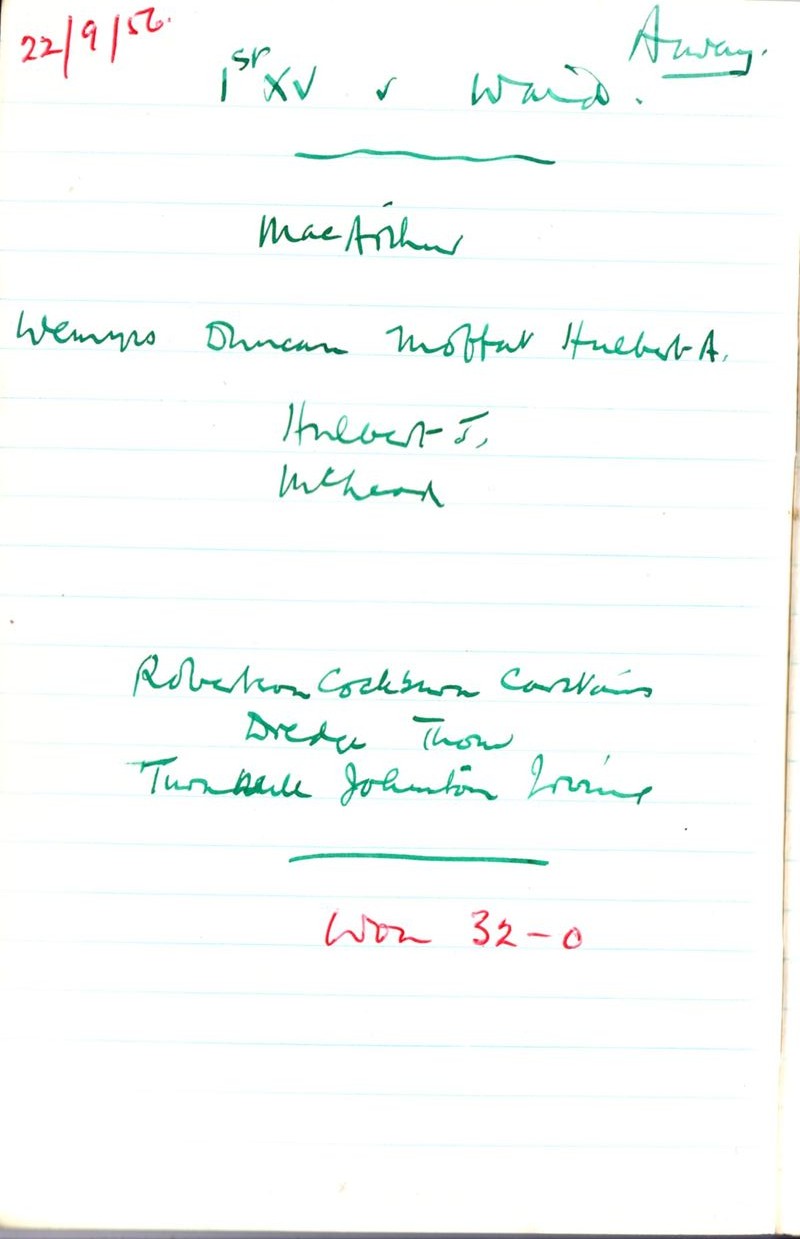 22/9/56. Away.
1st XV v Waid.
MacArthur
Wemyss Duncan Moffat Hulbert A.
Hulbert J.
Robertson Cockburn Carstairs
Dredge Thow
Turnbull Johnston Irvine
Won 32-0